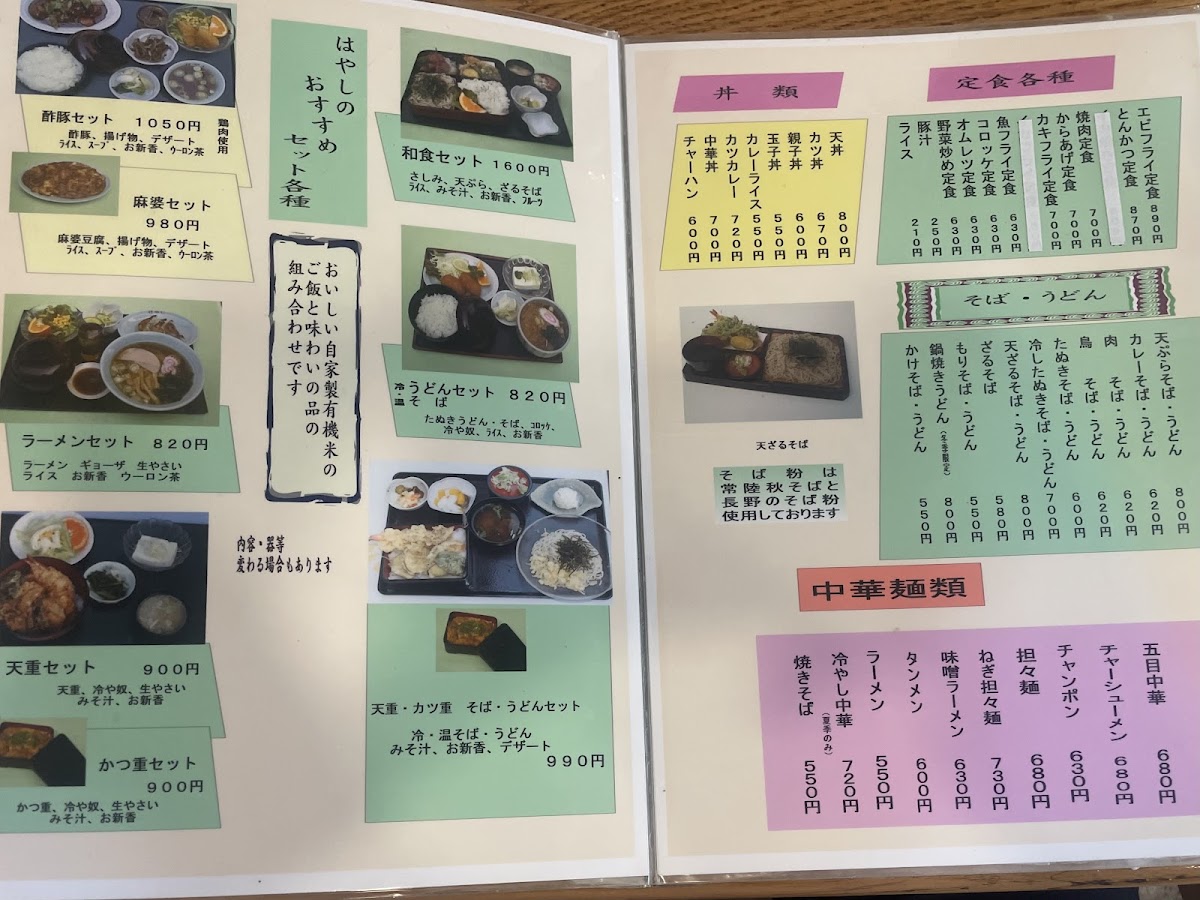 酢豚セット 1050円
鶏肉使用
酢豚、揚げ物、デザート
ライス、スープ、お新香、ウーロン茶
麻婆セット
980円
麻婆豆腐、揚げ物、デザート
ライス、スープ、お新香、ウーロン茶
ラーメンセット 820円
ラーメン ギョーザ 生やさい
ライス お新香 ウーロン茶
天重セット 900円
天重、冷や奴、生やさい
みそ汁、お新香
かつ重セット
900円
かつ重、冷や奴、生やさい
みそ汁、お新香
はやしの
おすすめ
セット各種
おいしい自家製有機米の
ご飯と味わいの品の
組み合わせです
内容・器等
変わる場合もあります
和食セット 1600円
さしみ、天ぷら、ざるそば
ライス、みそ汁、お新香、フルーツ
冷・温
うどんセット 820円
そ ば
たぬきうどん・そば、コロッケ、
冷や奴、ライス、お新香
天重・カツ重 そば・うどんセット
冷・温そば・うどん
みそ汁、お新香、デザート
990円
丼 類
天丼 800円
カツ丼 670円
親子丼 600円
玉子丼 550円
カレーライス 550円
カツカレー 720円
中華丼 700円
チャーハン 600円
定食各種
エビフライ定食 890円
とんかつ定食 870円
焼肉定食 700円
からあげ定食 700円
カキフライ定食 700円
魚フライ定食 630円
コロッケ定食 630円
オムレツ定食 630円
野菜炒め定食 630円
豚汁 250円
ライス 210円
そば・うどん
天ぷらそば・うどん 800円
カレーそば・うどん 650円
肉 そば・うどん 620円
鳥 そば・うどん 620円
たぬきそば・うどん 600円
冷したぬきそば・うどん 700円
天ざるそば・うどん 800円
ざるそば 580円
もりそば・うどん 550円
鍋焼きうどん(冬季限定) 800円
かけそば・うどん 550円
天ざるそば
そば粉は
常陸秋そばと
長野のそば粉
使用しております
中華麺類
五目中華 680円
チャーシューメン 680円
チャンポン 630円
担々麺 680円
ねぎ担々麺 730円
味噌ラーメン 630円
タンメン 600円
ラーメン 550円
冷やし中華(夏季のみ) 720円
焼きそば 550円